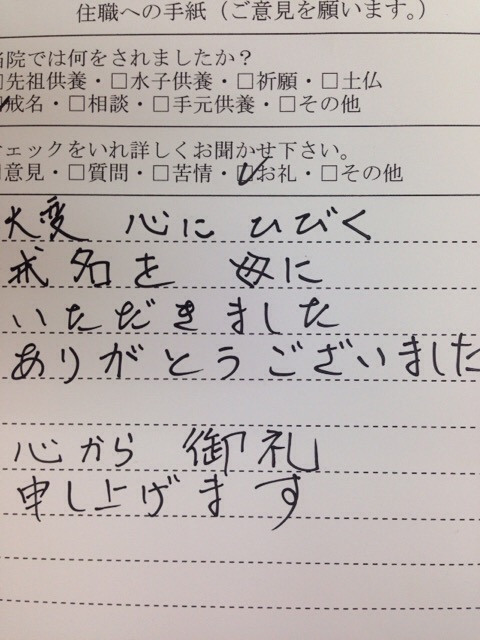 住職への手紙（ご意見を願います。）
当院では何をされましたか？
□先祖供養・□水子供養・□祈願・□土仏
戒名・□相談・□手元供養・□その他
チェックをいれ詳しくお聞かせ下さい。
意見・□質問・□苦情・□お礼・□その他
大変 心に ひびく
戒名を 母に
いただきました
ありがとうございました
心から 御礼
申し上げます